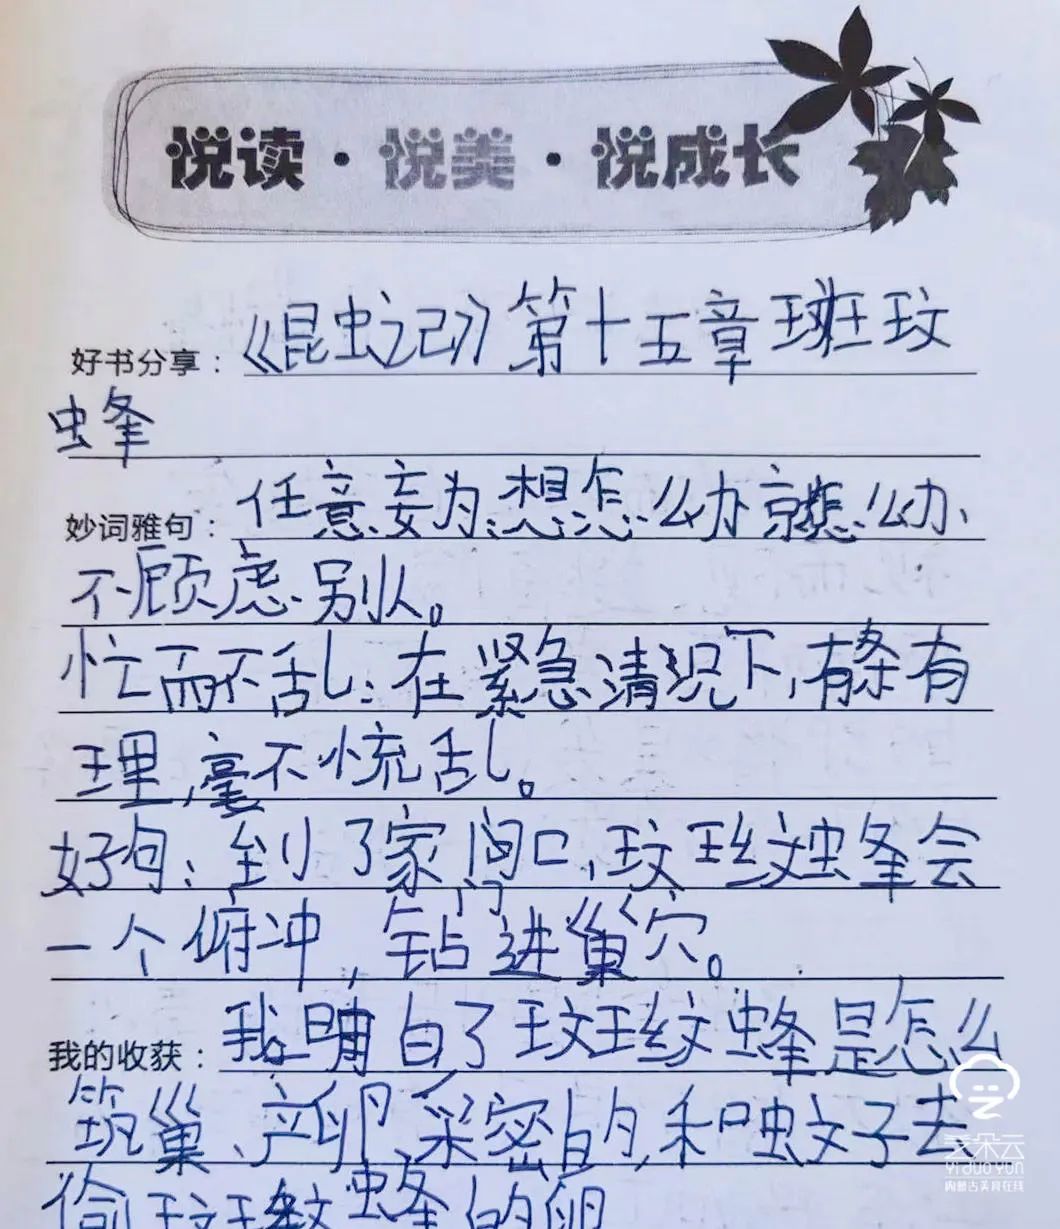 悦读·悦美·悦成长
好书分享：《昆虫记》第十五章斑玟
蜂
妙词雅句：任意妄为:想怎么办就怎么办、
不顾虑别人。
忙而不乱:在紧急清况下,有条有
理,毫不慌乱。
好句:到了家门口,玟纹蜂会
一个俯冲,钻进巢穴。
我的收获：我明白了玟纹蜂是怎么
筑巢、产卵、采密的,和蚊子去
偷玟纹蜂的卵
朵云
YIDUOYUN
内蒙古美育在线